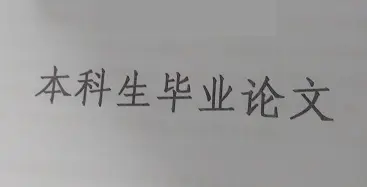 本科生毕业论文